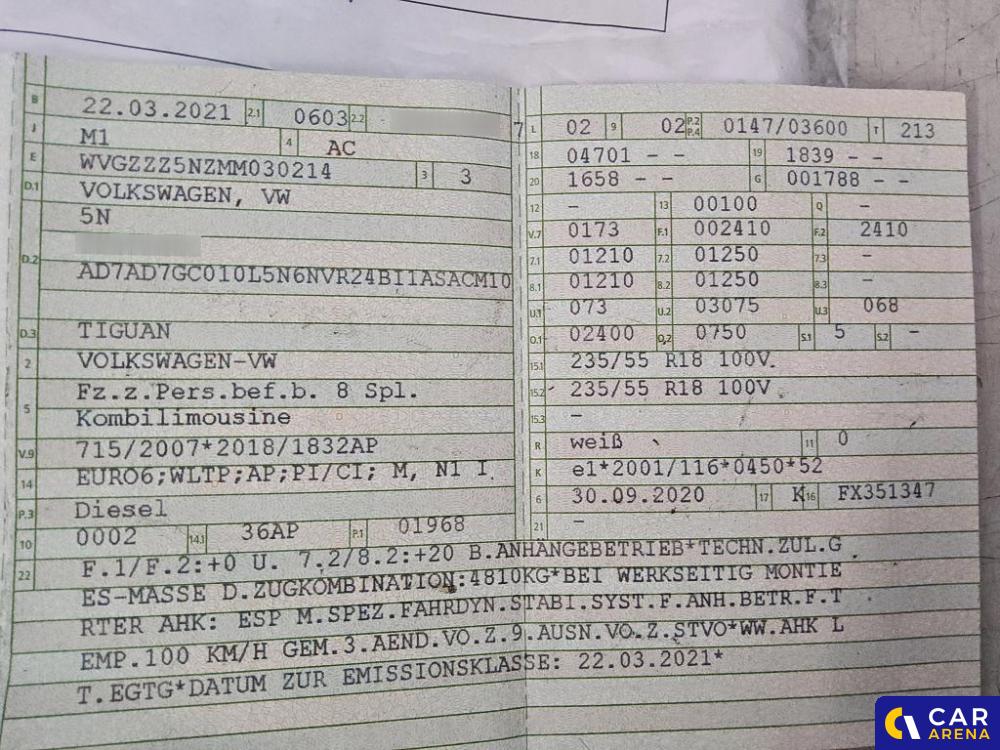 B 22.03.2021 2.1 0603 2.2 -
J M1 4 AC
E WVGZZZ5NZMM030214 3 3
D.1 VOLKSWAGEN, VW
5N
D.2
AD7AD7GC010L5N6NVR24BI1ASACM10
D.3 TIGUAN
2 VOLKSWAGEN-VW
Fz.z.Pers.bef.b. 8 Spl.
5 Kombilimousine
V.9 715/2007*2018/1832AP
14 EURO6;WLTP;AP;PI/CI; M, N1 I
P.3 Diesel
10 0002 14.1 36AP P.1 01968
7 L 02 9 02 P.2 P.4 0147/03600 T 213
18 04701 - - 19 1839 - -
20 1658 - - G 001788 - -
12 - 13 00100 Q -
V.7 0173 F.1 002410 F.2 2410
7.1 01210 7.2 01250 7.3 -
8.1 01210 8.2 01250 8.3 -
U.1 073 U.2 03075 U.3 068
O.1 02400 O.2 0750 S.1 5 S.2 -
15.1 235/55 R18 100V
15.2 235/55 R18 100V
15.3 -
R weiß 11 0
K e1*2001/116*0450*52
6 30.09.2020 17 K 16 FX351347
21 -
22 F.1/F.2:+0 U. 7.2/8.2:+20 B.ANHÄNGEBETRIEB*TECHN.ZUL.G
ES-MASSE D.ZUGKOMBINATION:4810KG*BEI WERKSEITIG MONTIE
RTER AHK: ESP M.SPEZ.FAHRDYN.STABI.SYST.F.ANH.BETR.F.T
EMP.100 KM/H GEM.3.AEND.VO.Z.9.AUSN.VO.Z.STVO*WW.AHK L
T.EGTG*DATUM ZUR EMISSIONSKLASSE: 22.03.2021*
CAR
ARENA